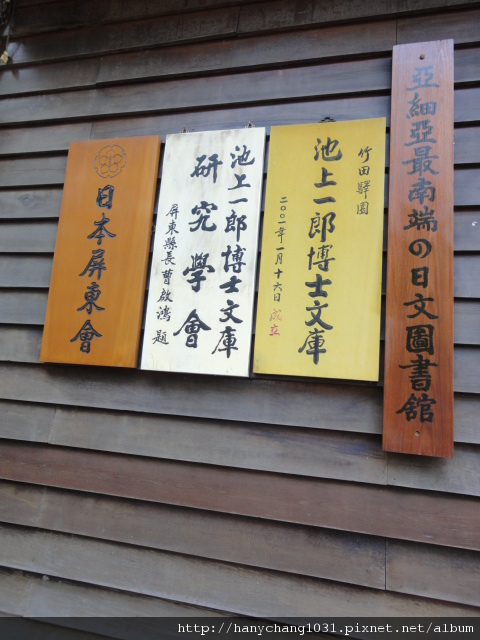 亞細亞最南端の日文圖書館
竹田驛園
池上一郎博士文庫
二〇〇一年一月十六日 成立
池上一郎博士文庫
研究學會
屏東縣長 曹啟鴻 題
日本屏東會
http://hanychang1031.pixnet.net/album